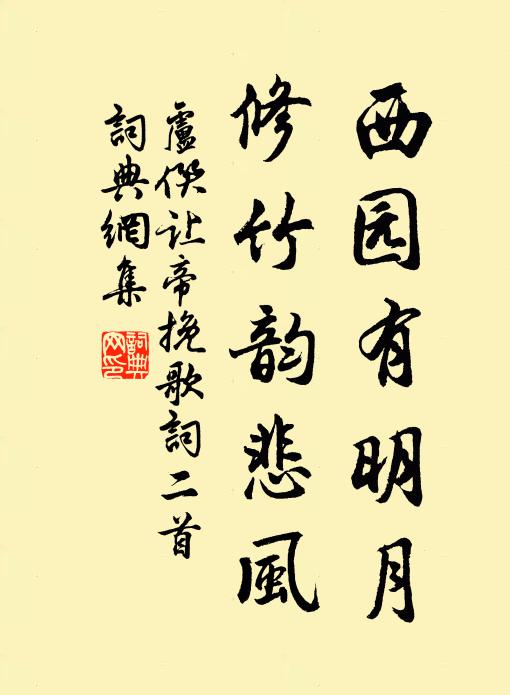 西园有明月
修竹韵悲風
盧僎让帝挽歌詞二首
詞典網集
詞典网印